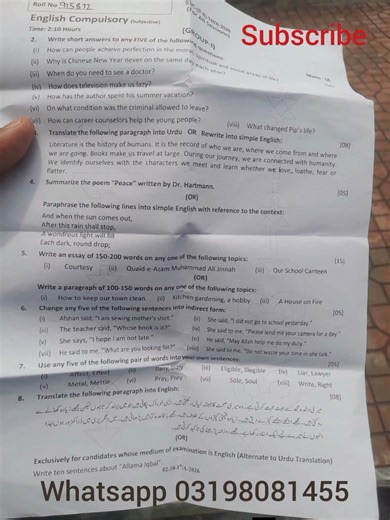 Roll No 915872
English Compulsory (Subjective)
(GROUP-I)
Subscribe
Time: 2:10 Hours
2. Write short answers to any FIVE of the following questions:
(i) How can people achieve perfection in the moral, spiritual and social areas of life?
(ii) Why is Chinese New Year never on the same day each year?
(iii) When do you need to see a doctor?
(iv) How does television make us lazy?
(v) How has the author spent his summer vacation?
(vi) On what condition was the criminal allowed to leave?
(vii) How can career counselors help the young people? (viii) What changed Pip's life?
3. Translate the following paragraph into Urdu OR Rewrite into simple English: [08]
Literature is the history of humans. It is the record of who we are, where we come from and where
we are going. Books make us travel at large. During our journey, we are connected with humanity.
We identify ourselves with the characters we meet and learn whether we love, loathe, fear or
flatter.
4. Summarize the poem "Peace" written by Dr. Hartmann. [05]
(OR)
Paraphrase the following lines into simple English with reference to the context:
And when the sun comes out,
After this rain shall stop,
A wondrous light will fill
Each dark, round drop;
5. Write an essay of 150-200 words on any one of the following topics: [15]
(i) Courtesy (ii) Quaid-e-Azam Muhammad Ali Jinnah (iii) Our School Canteen
(OR)
Write a paragraph of 100-150 words on any one of the following topics:
(i) How to keep our town clean (ii) Kitchen gardening, a hobby (iii) A House on Fire
6. Change any five of the following sentences into indirect form: [05]
(i) Afshan said, "I am sewing mother's shirt." (ii) She said, "I did not go to school yesterday."
(iii) The teacher said, "Whose book is it?" (iv) She said to me, "Please lend me your camera for a day."
(v) She says, "I hope I am not late." (vi) He said, "May Allah help me do my duty."
(vii) He said to me, "What are you looking for?" (viii) She said to me, "Do not waste your time in idle talk."
7. Use any five of the following pair of words into your own sentences: [05]
(i) Affect, Effect (ii) Dairy, Diary (iii) Eligible, Illegible (iv) Liar, Lawyer
(v) Metal, Mettle (vi) Pray, Prey (vii) Sole, Soul (viii) Write, Right
8. Translate the following paragraph into English: [08]
(OR)
Exclusively for candidates whose medium of examination is English (Alternate to Urdu Translation)
Write ten sentences about "Allama Iqbal".
Whatsapp 03198081455